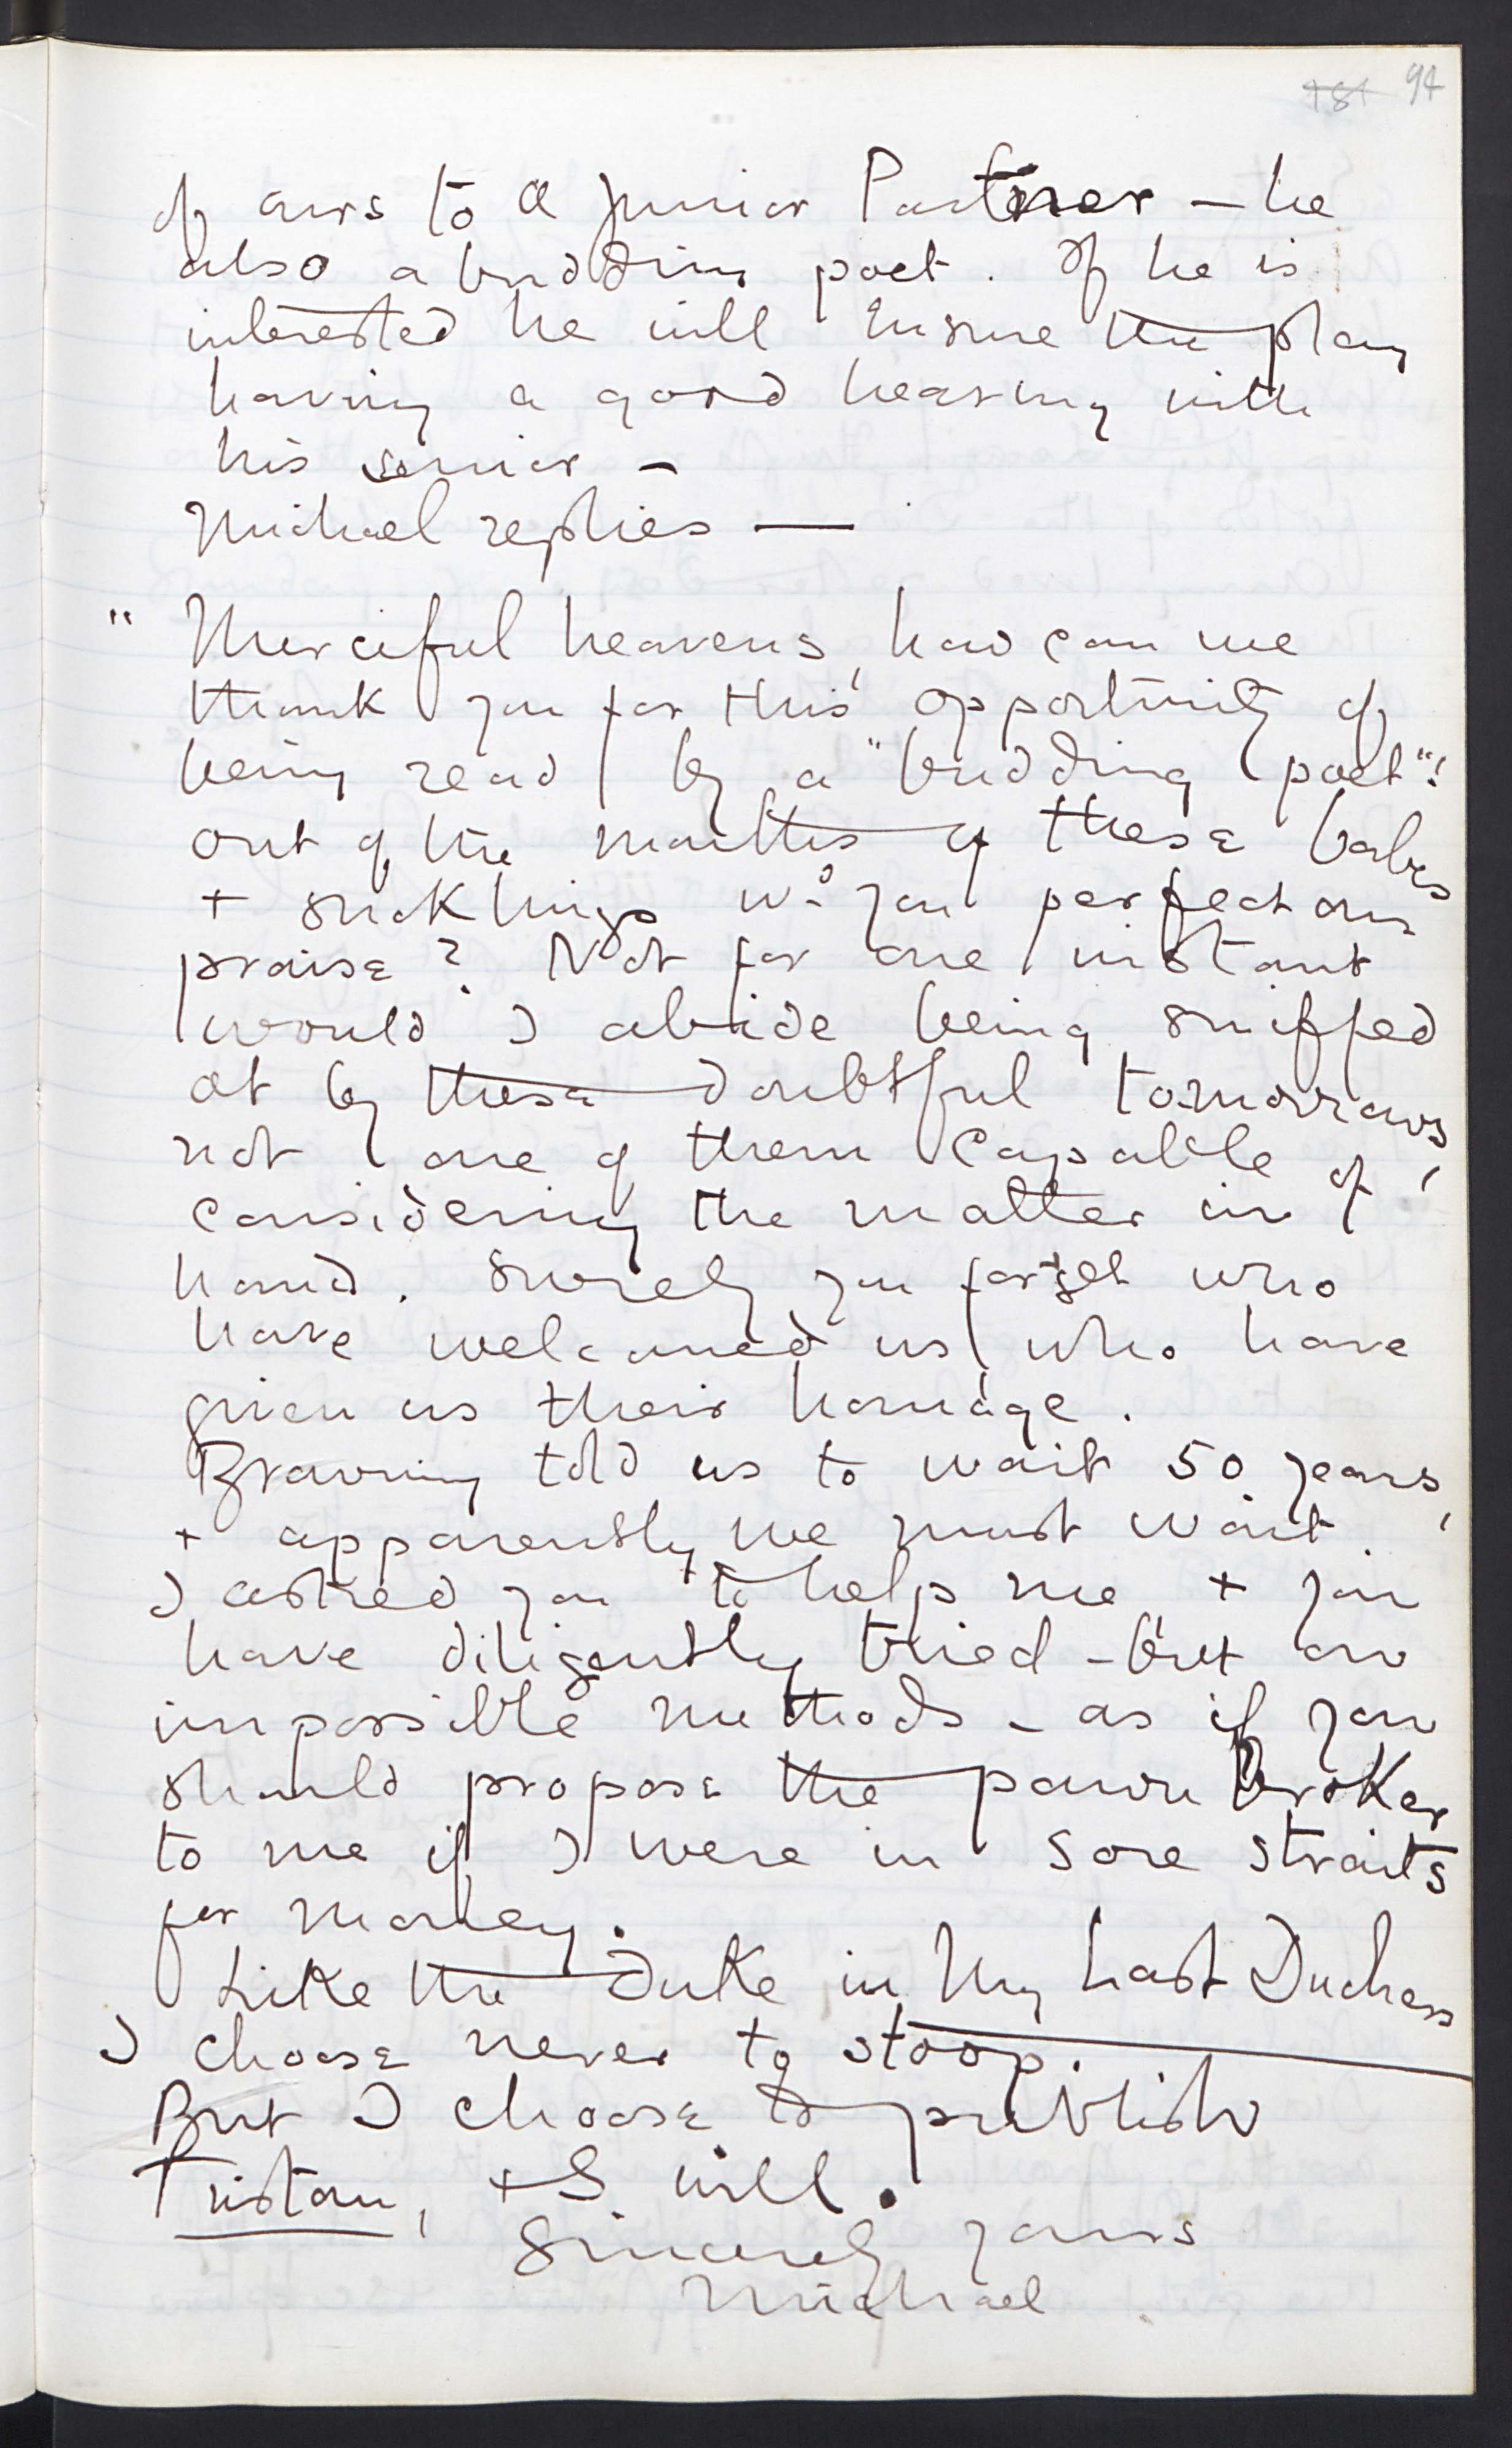 ~~181~~ 94
of ours to a junior Partner – he
also a budding poet. If he is
interested he will ensure the play
having a good hearing with
his senior –
Michael replies —
" Merciful heavens, how can we
thank you for this opportunity of
being read by a "budding poet"!
out of the mouths of these babes
+ sucklings wd you perfect our
praise? Not for one instant
would I abide being sniffed
at by these doubtful tomorrows,
not one of them capable of
considering the matter in
hand. Surely you forget who
have welcomed us, who have
given us their homage.
Browning told us to wait 50 years,
+ apparently we must wait.
I asked you to help me + you
have diligently tried – but on
impossible methods – as if you
should propose the pawn broker
to me if I were in sore straits
for money.
Like the Duke in My Last Duchess
I choose never to stoop.
But I choose to publish
Tristan, + I will.
Sincerely yours
Michael